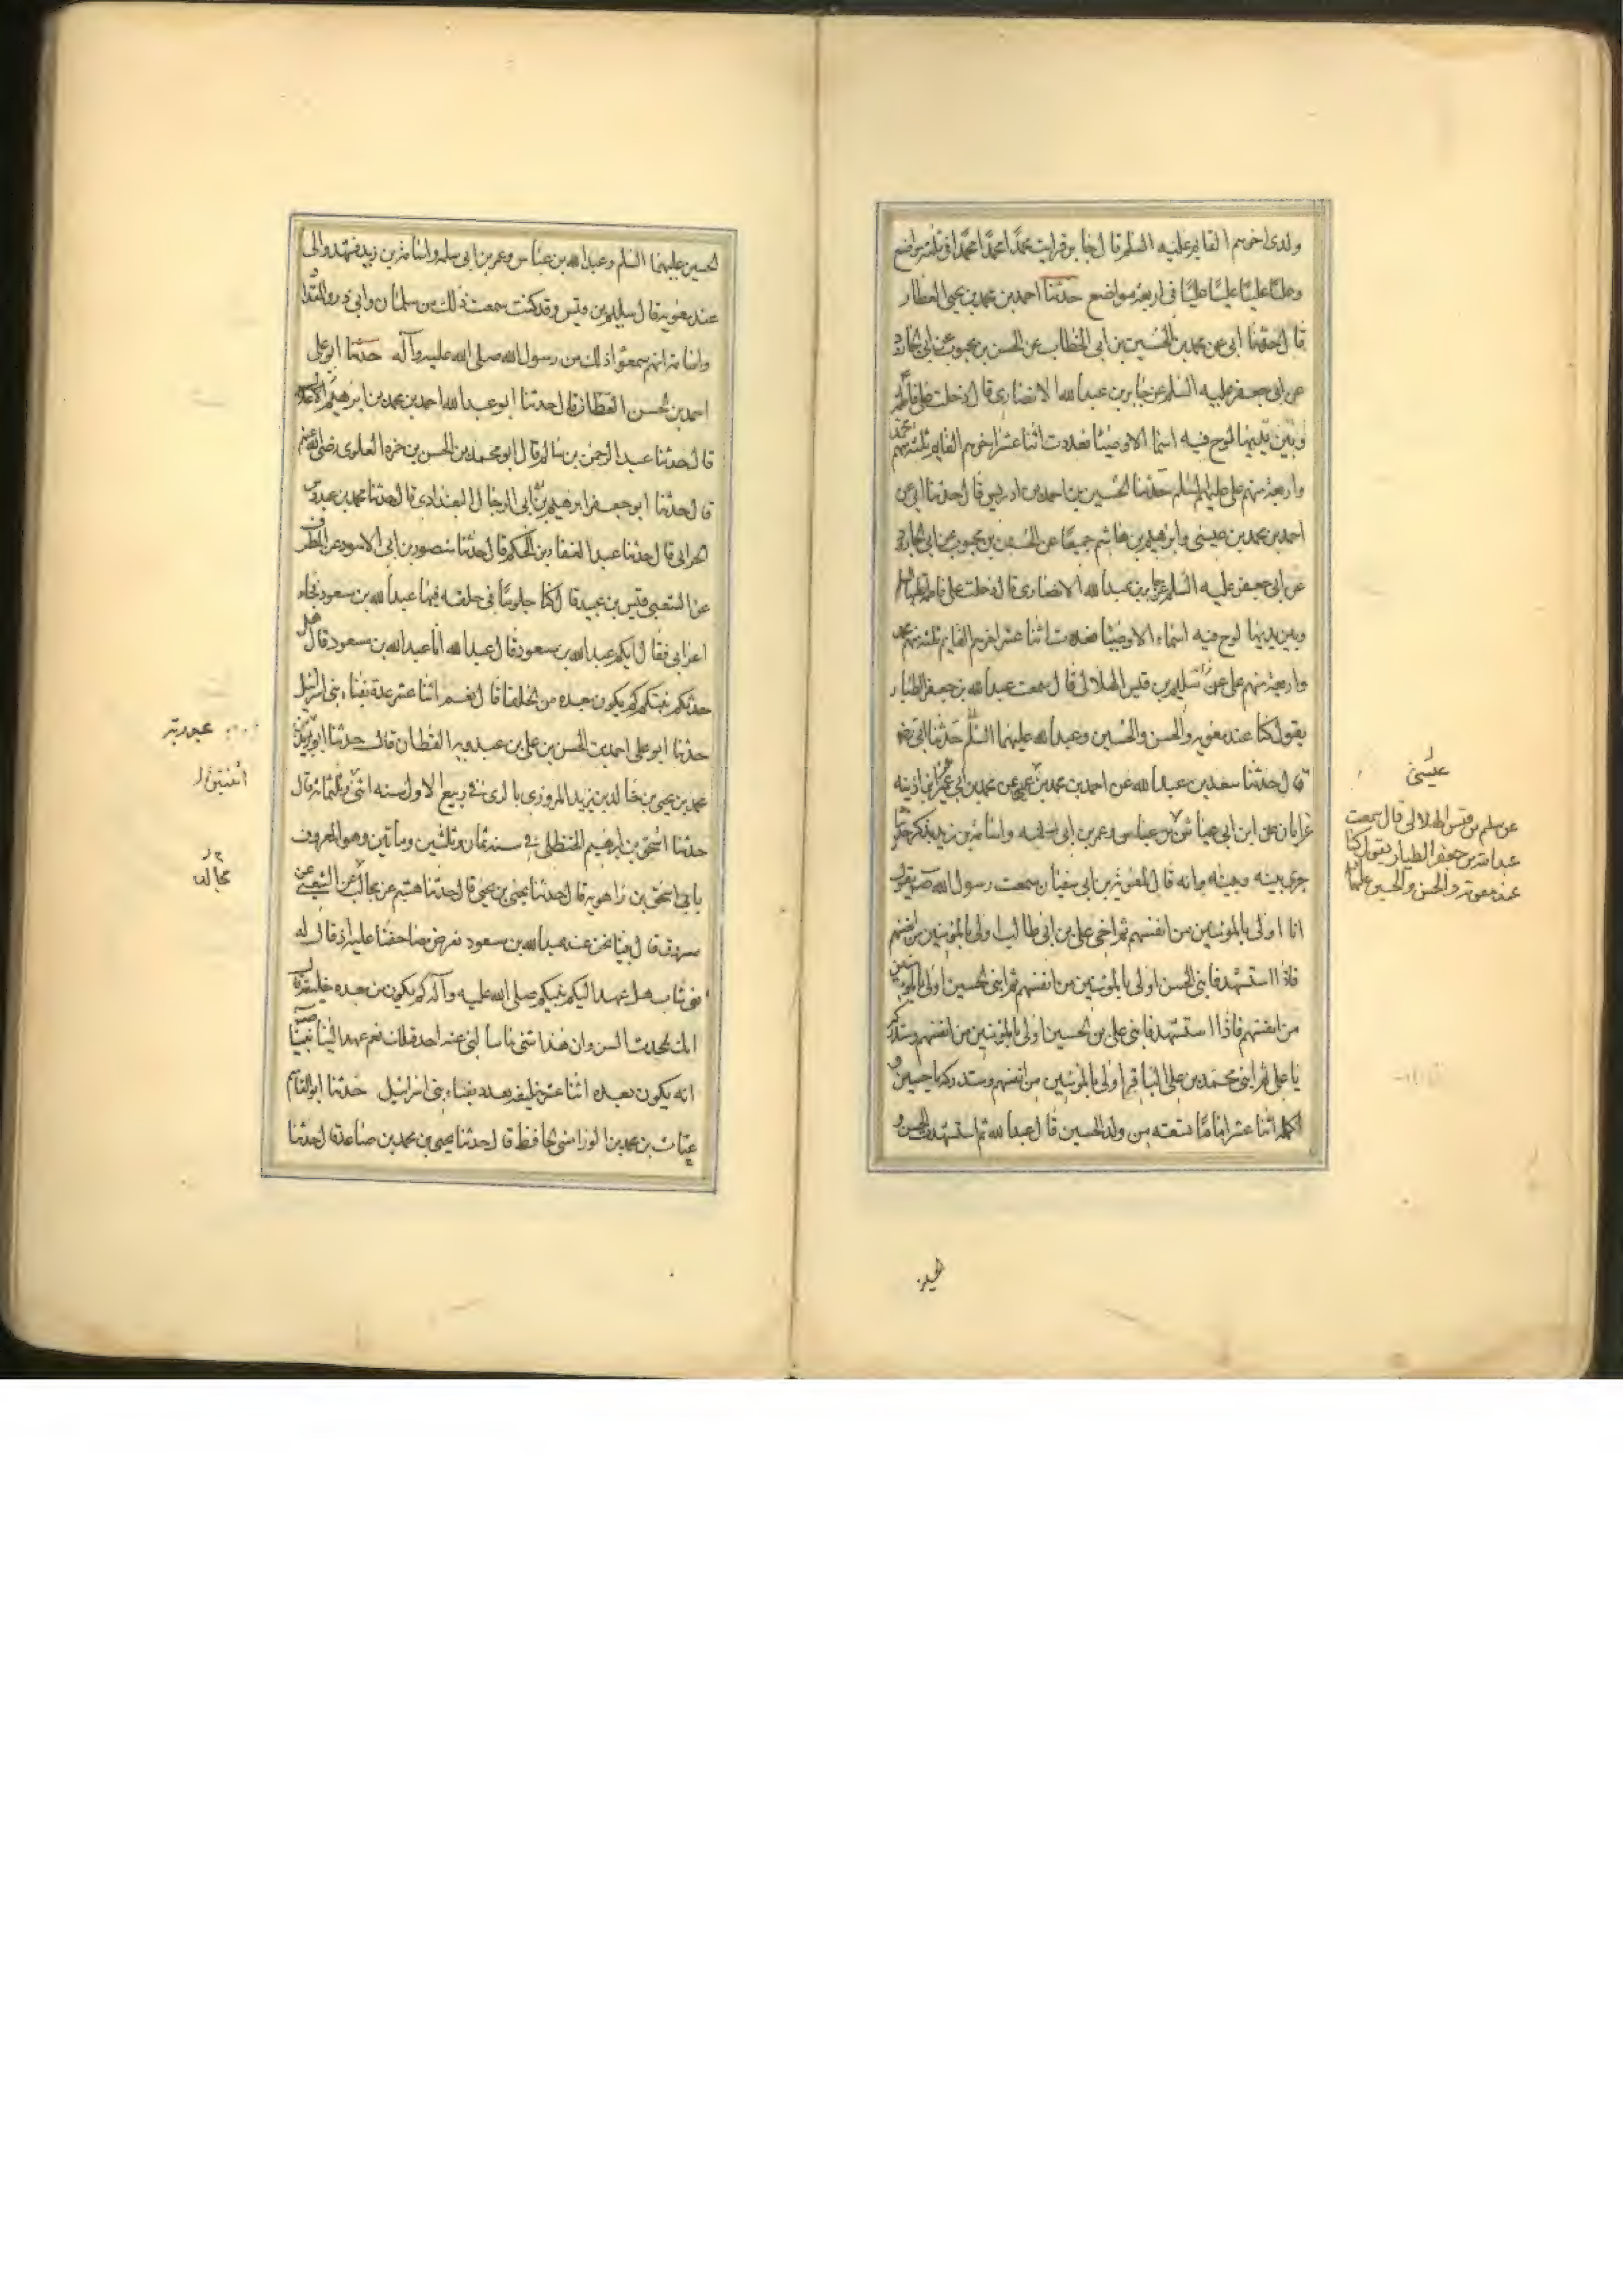 ولدی اخرهم القایم علیه السلم قال جابر فرایت محمدا محمدا محمدا فی ثلثه مواضع
وعلیا علیا علیا علیا فی اربعة مواضع حدثنا احمد بن محمد بن یحیی العطار
قال حدثنا ابی عن محمد بن الحسین بن ابی الخطاب عن الحسن بن محبوب عن ابی الجارود
عن ابی جعفر علیه السلم عن جابر بن عبدالله الانصاری قال دخلت علی فاطمة
وبین یدیها لوح فیه اسما الاوصیا فعددت اثنا عشر اخرهم القایم ثلثة منهم محمد
واربعة منهم علی علیهم السلم حدثنا الحسین بن احمد بن ادریس قال حدثنا ابی عن
احمد بن محمد بن عیسی وابرهیم بن هاشم جمیعا عن الحسن بن محبوب عن ابی الجارود
عن ابی جعفر علیه السلم عن جابر بن عبدالله الانصاری قال دخلت علی فاطمة علیها السلم
وبین یدیها لوح فیه اسماء الاوصیا فعددت اثنا عشر اخرهم القایم ثلثة منهم محمد
واربعة منهم علی عن سلیم بن قیس الهلالی قال سمعت عبدالله بن جعفر الطیار
یقول کنا عند معویه والحسن والحسین وعبدالله علیهما السلم حدثنا ابی رضه
قال حدثنا سعد بن عبدالله عن احمد بن محمد بن عیسی عن محمد بن ابی عمیر عن ابن اذینه
عن ابان عن ابن ابی عیاش بن عباس وعمر بن ابی سلمه واسامة بن زید یذکر حدیثا
جری بینه وبینه وانه قال لمعویة بن ابی سفیان سمعت رسول الله صه یقول
انا اولی بالمؤمنین من انفسهم ثم اخی علی بن ابی طالب اولی بالمؤمنین من انفسهم
فاذا استشهد فابنی الحسن اولی بالمؤمنین من انفسهم ثم ابنی الحسین اولی بالمؤمنین
من انفسهم فاذا استشهد فابنی علی بن الحسین اولی بالمؤمنین من انفسهم وستدرکه
یا علی ثم ابنی محمد بن علی الباقر اولی بالمؤمنین من انفسهم وستدرکه یا حسین و
اکمله اثنا عشر اماما تسعته من ولد الحسین قال عبدالله ثم استشهدت الحسن و
عیسی
عن سلیم بن قیس الهلالی قال سمعت
عبدالله بن جعفر الطیار یقول کنا
عند معویة والحسن والحسین علیهما
الحسین
الحسین علیهما السلم وعبدالله بن عباس وعمر بن ابی سلمه واسامة بن زید فشهدوا لی
عند معویة قال سلیم بن قیس وقد کنت سمعت ذلک من سلمان وابی ذر والمقداد
واسامة انهم سمعوا ذلک من رسول الله صلی الله علیه وآله حدثنا ابو علی
احمد بن الحسن القطان قال حدثنا ابو عبدالله احمد بن محمد بن ابرهیم
قال حدثنا عبد الرحمن بن سالم قال ابو محمد بن الحسن بن حمزه العلوی رضی الله عنهم
قال حدثنا ابو جعفر ابرهیم بن ابی الرجال البغدادی قال حدثنا محمد بن عبدوس
الحرانی قال حدثنا عبد الغفار بن الحکم قال حدثنا منصور بن ابی الاسود عن مطرف
عن الشعبی قیس بن عبید قال کنا جلوسا فی حلقه فیها عبدالله بن مسعود فجاء
اعرابی فقال ایکم عبدالله بن مسعود قال عبدالله انا عبدالله بن مسعود قال هل
حدثکم نبیکم کم یکون بعده من الخلفا قال نعم اثنا عشر عدة نقباء بنی اسرائیل
حدثنا ابو علی احمد بن الحسن بن علی بن عبدویه القطان قال حدثنا ابو یزید
محمد بن یحیی بن خالد بن یزید المروزی بالری فی ربیع الاول سنه اثنی وثلثمائة قال
حدثنا اسحق بن ابرهیم الحنظلی فی سنه ثمان وثلثین ومأتین وهو المعروف
بابی اسحق بن راهویه قال حدثنا یحیی بن یحیی قال حدثنا هشیم عن مجالد عن الشعبی عن
مسروق قال بینا نحن عند عبدالله بن مسعود نعرض مصاحفنا علیه اذ قال له
فتی شاب هل عهد الیکم نبیکم صلی الله علیه وآله کم یکون من بعده خلیفة قال
انک لحدث السن وان هذا شئی ما سألنی عنه احد قبلک نعم عهد الینا نبینا صه
انه یکون بعده اثنا عشر خلیفة بعدد نقباء بنی اسرائیل حدثنا ابوالقاسم
عتاب بن محمد بن الورامینی الحافظ قال حدثنا یحیی بن محمد بن صاعد قال حدثنا
عبدربه
اثنتین
مجالد